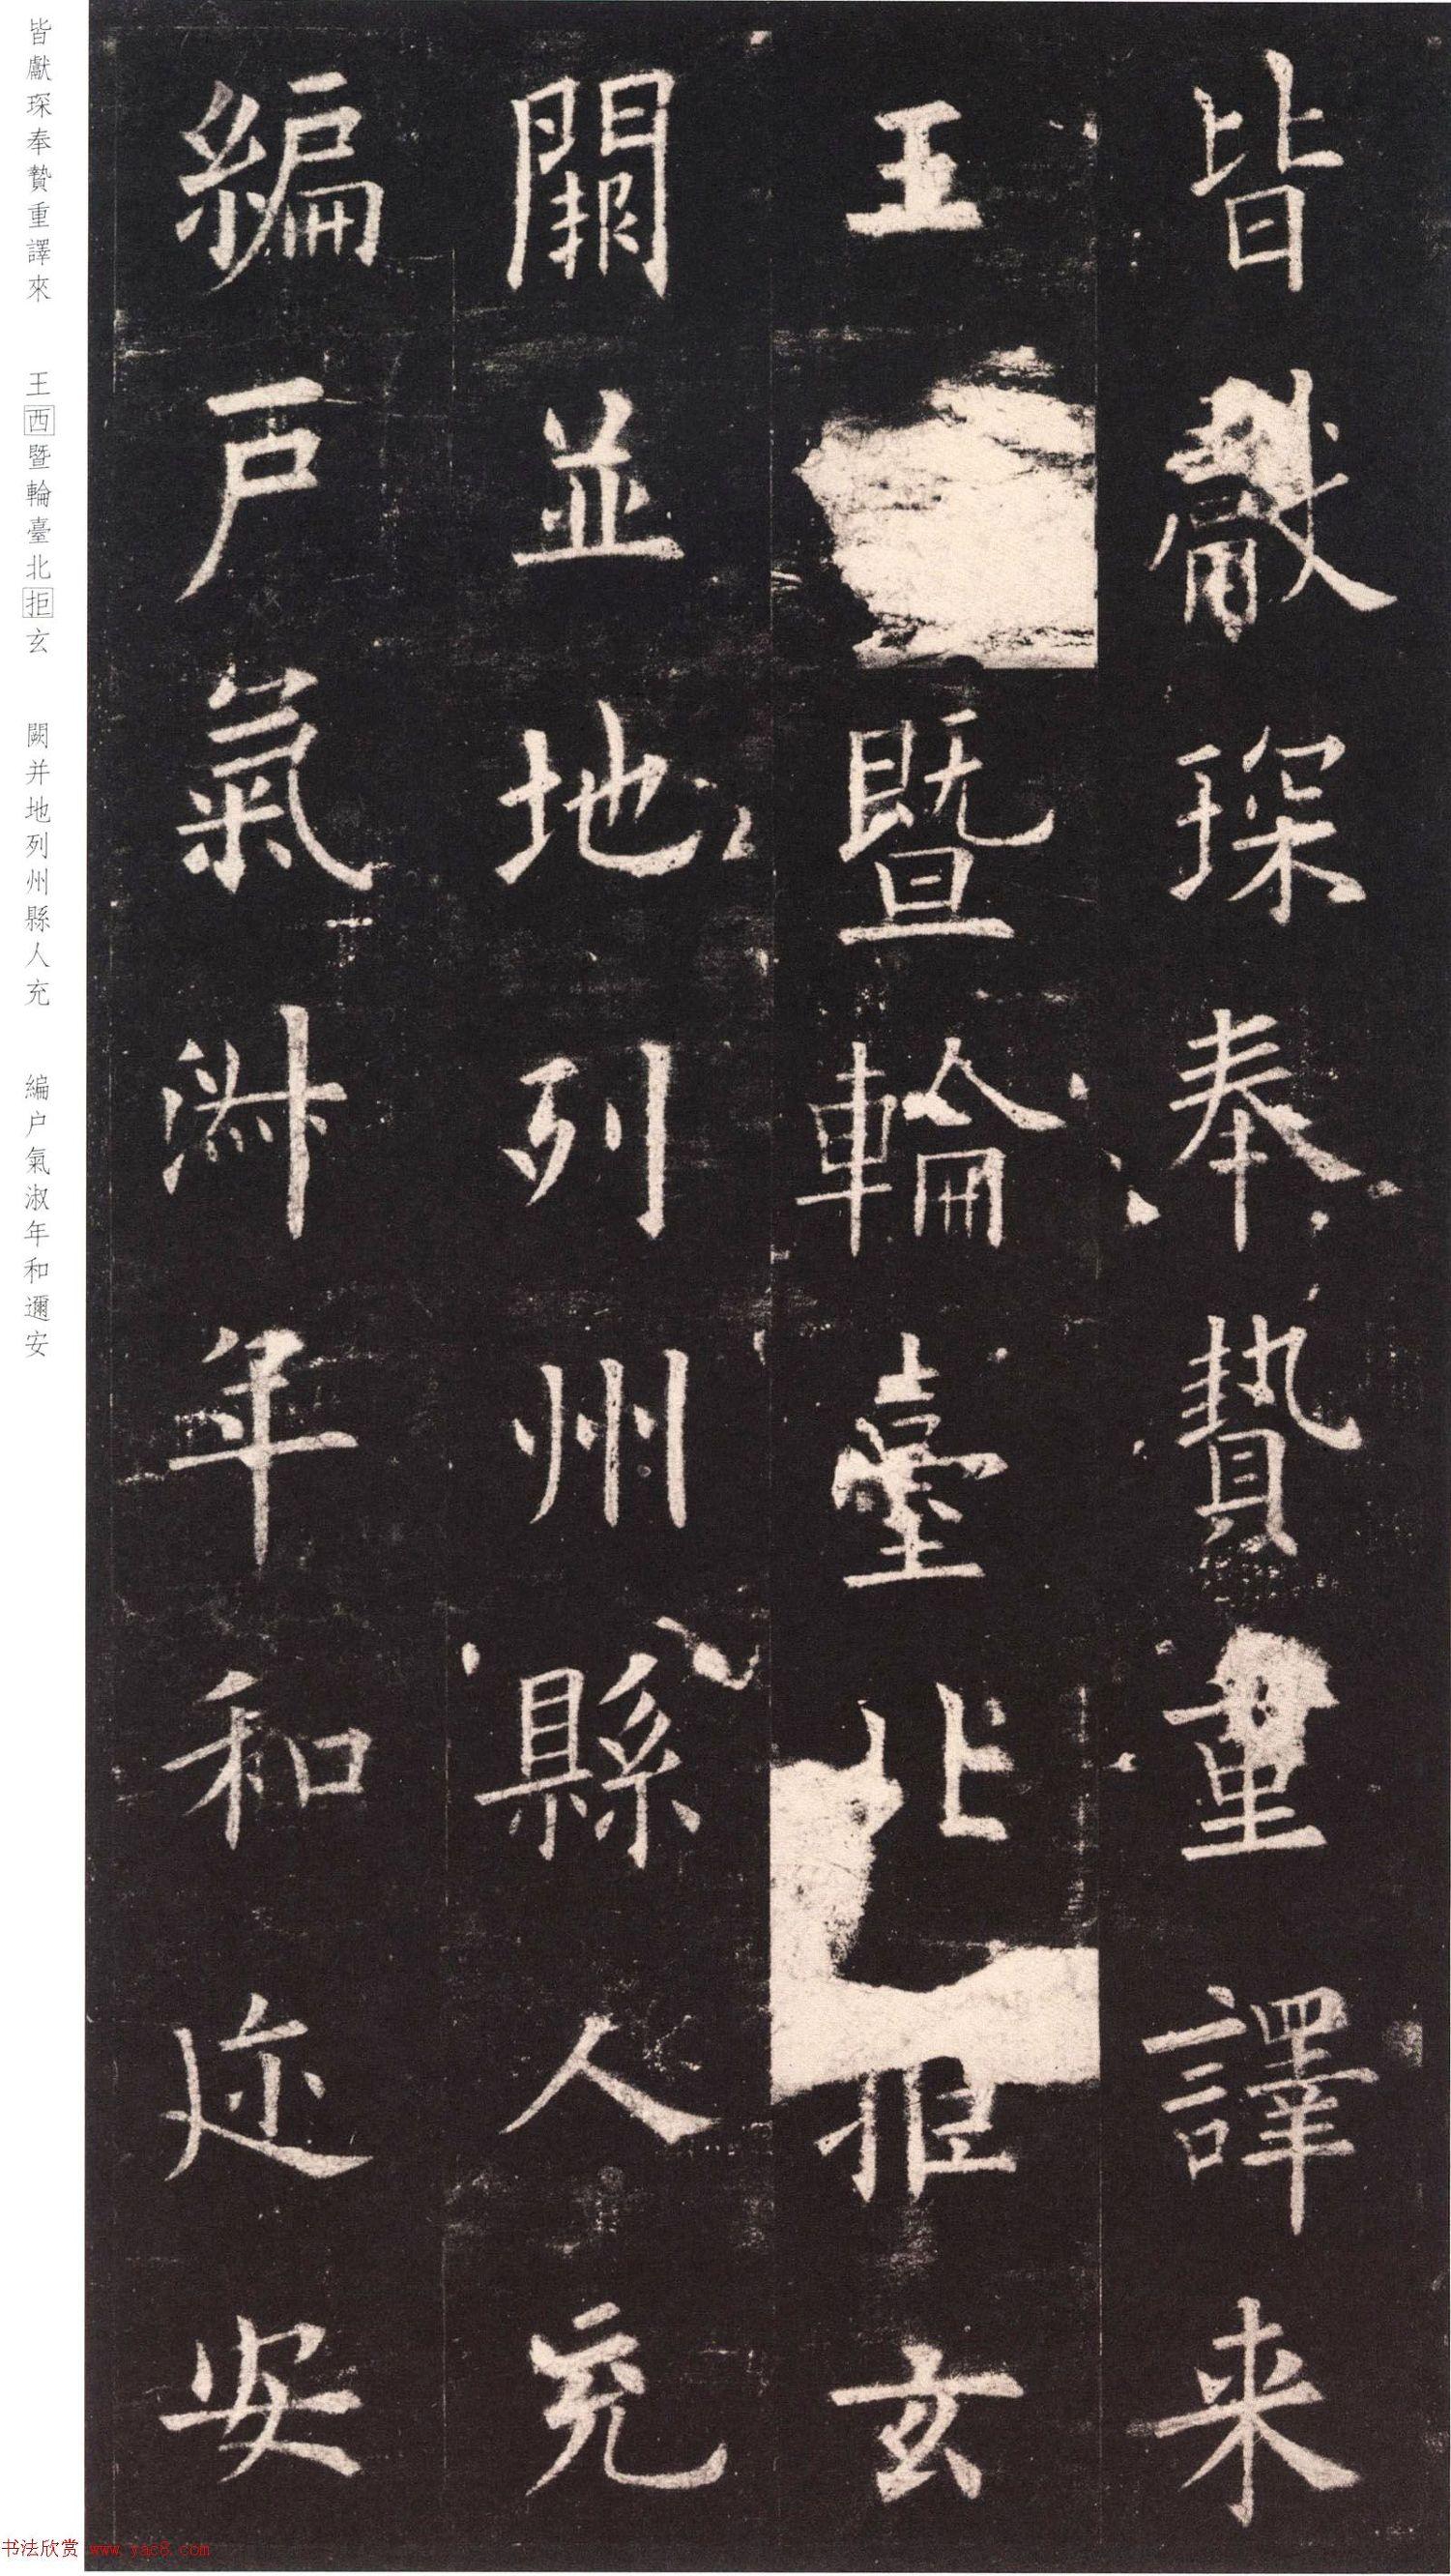 皆獻琛奉贄重譯来
王暨輪臺北拒玄
闕並地列州縣人充
編戶氣淋年和迩安
皆獻琛奉贄重譯來
王西暨輪臺北拒玄
闕并地列州縣人充
編户氣淑年和邇安
书法欣赏 www.yac8.com